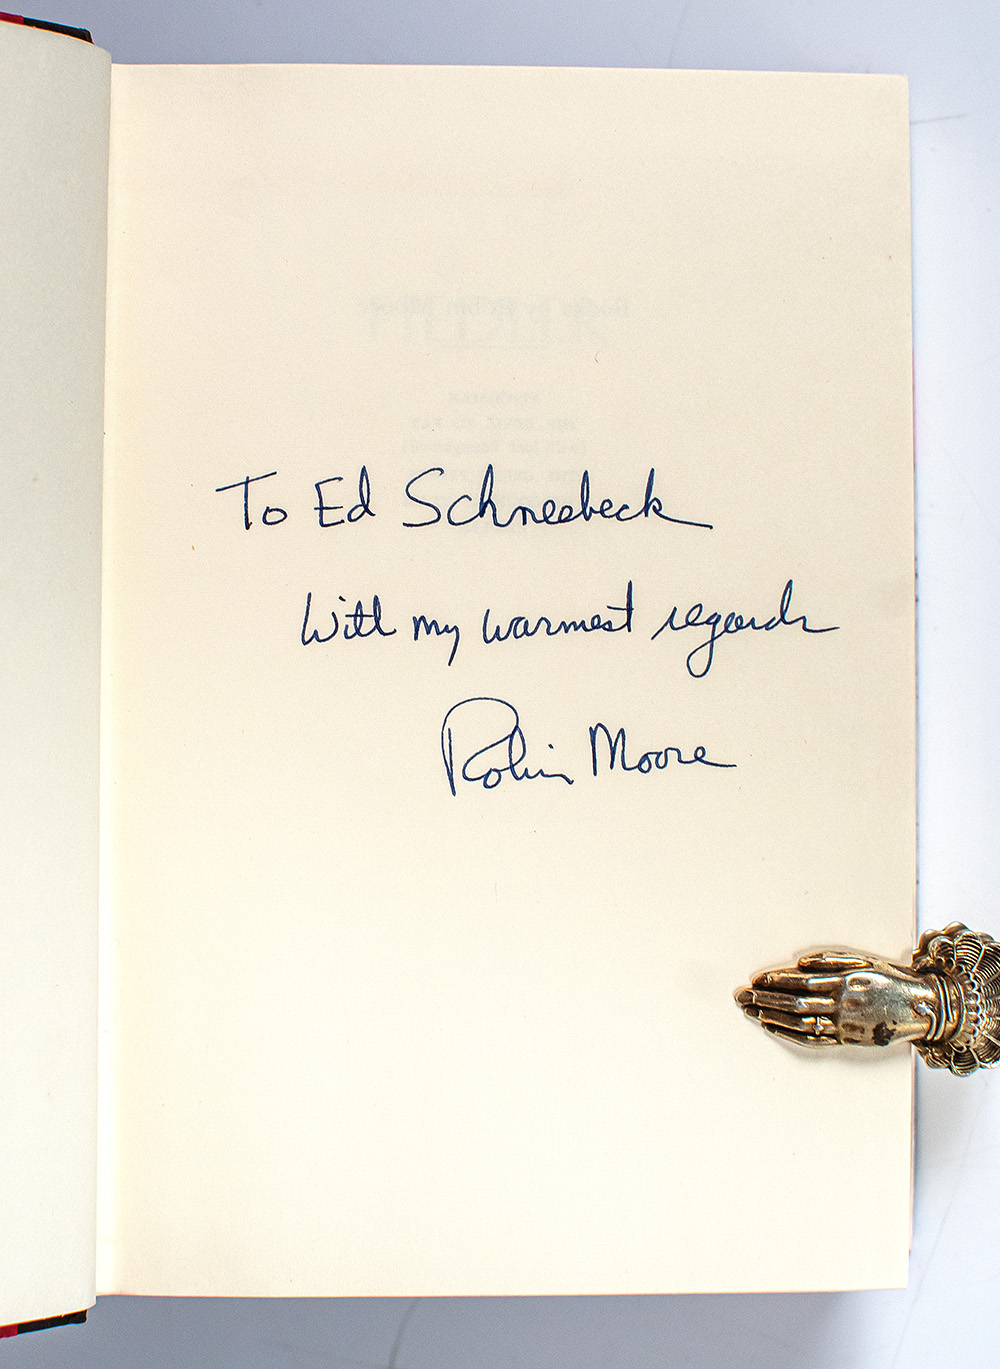 To Ed Schneebeck
With my warmest regards
Robin Moore